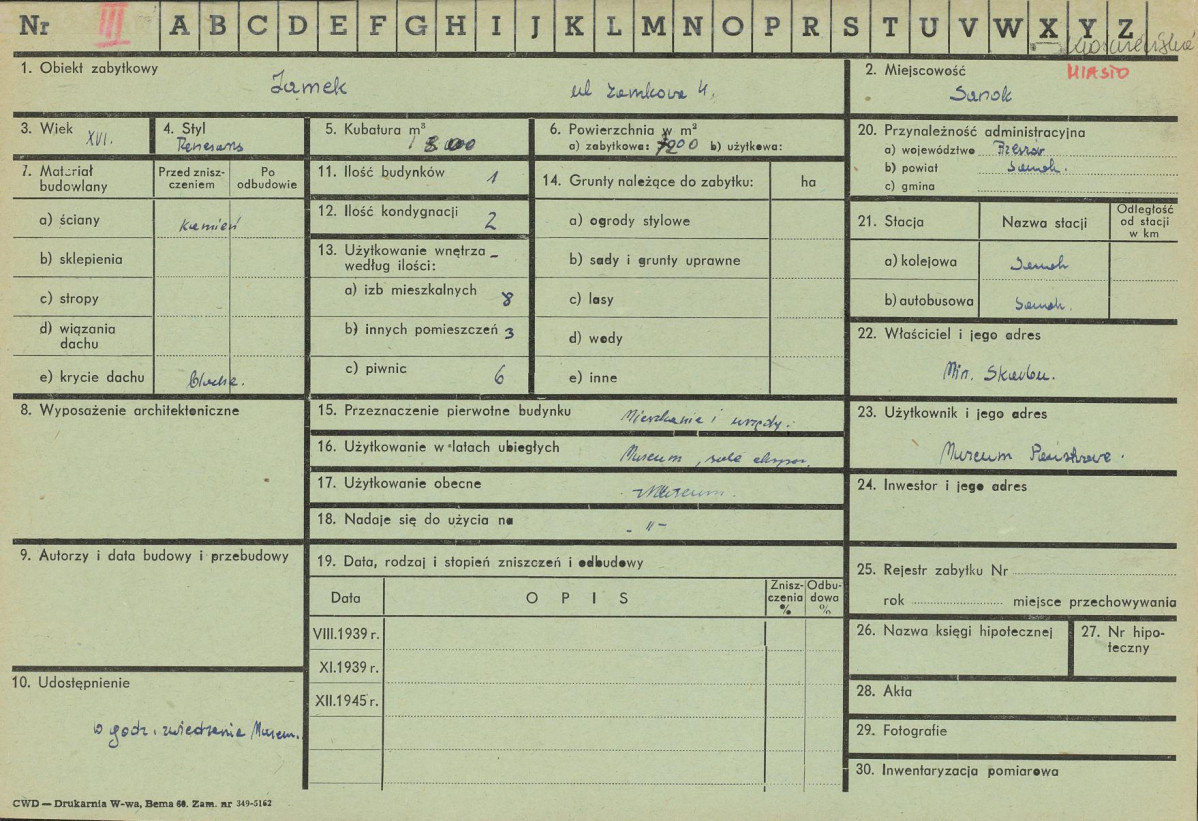 Nr III A B C D E F G H I J K L M N O P R S T U V W X Y Z
1. Obiekt zabytkowy
Zamek ul Zamkowa 4.
2. Miejscowość
MIASTO
Sanok
3. Wiek
XVI.
4. Styl
Renesans
5. Kubatura m³
6. Powierzchnia w m²
a) zabytkowa: 7200 b) użytkowa:
20. Przynależność administracyjna
a) województwo Rzeszów
b) powiat Sanok.
c) gmina
7. Materiał budowlany
Przed zniszczeniem
Po odbudowie
a) ściany kamień
b) sklepienia
c) stropy
d) wiązania dachu
e) krycie dachu blacha.
11. Ilość budynków 1
12. Ilość kondygnacji 2
13. Użytkowanie wnętrza według ilości:
a) izb mieszkalnych 8
b) innych pomieszczeń 3
c) piwnic 6
14. Grunty należące do zabytku: ha
a) ogrody stylowe
b) sady i grunty uprawne
c) lasy
d) wody
e) inne
21. Stacja
Nazwa stacji
Odległość od stacji w km
a) kolejowa Sanok
b) autobusowa Sanok.
22. Właściciel i jego adres
Min. Skarbu.
8. Wyposażenie architektoniczne
15. Przeznaczenie pierwotne budynku Mieszkanie i urzędy.
16. Użytkowanie w latach ubiegłych Museum, sale ekspoz.
17. Użytkowanie obecne Museum.
18. Nadaje się do użycia na - " -
23. Użytkownik i jego adres
Museum Państwowe.
24. Inwestor i jego adres
9. Autorzy i data budowy i przebudowy
19. Data, rodzaj i stopień zniszczeń i odbudowy
Data
OPIS
Zniszczenia %
Odbudowa %
VIII.1939 r.
XI.1939 r.
XII.1945 r.
25. Rejestr zabytku Nr
rok miejsce przechowywania
26. Nazwa księgi hipotecznej
27. Nr hipoteczny
10. Udostępnienie
w godz. zwiedzania Museum.
28. Akta
29. Fotografie
30. Inwentaryzacja pomiarowa
CWD — Drukarnia W-wa, Bema 60. Zam. nr 349-5162